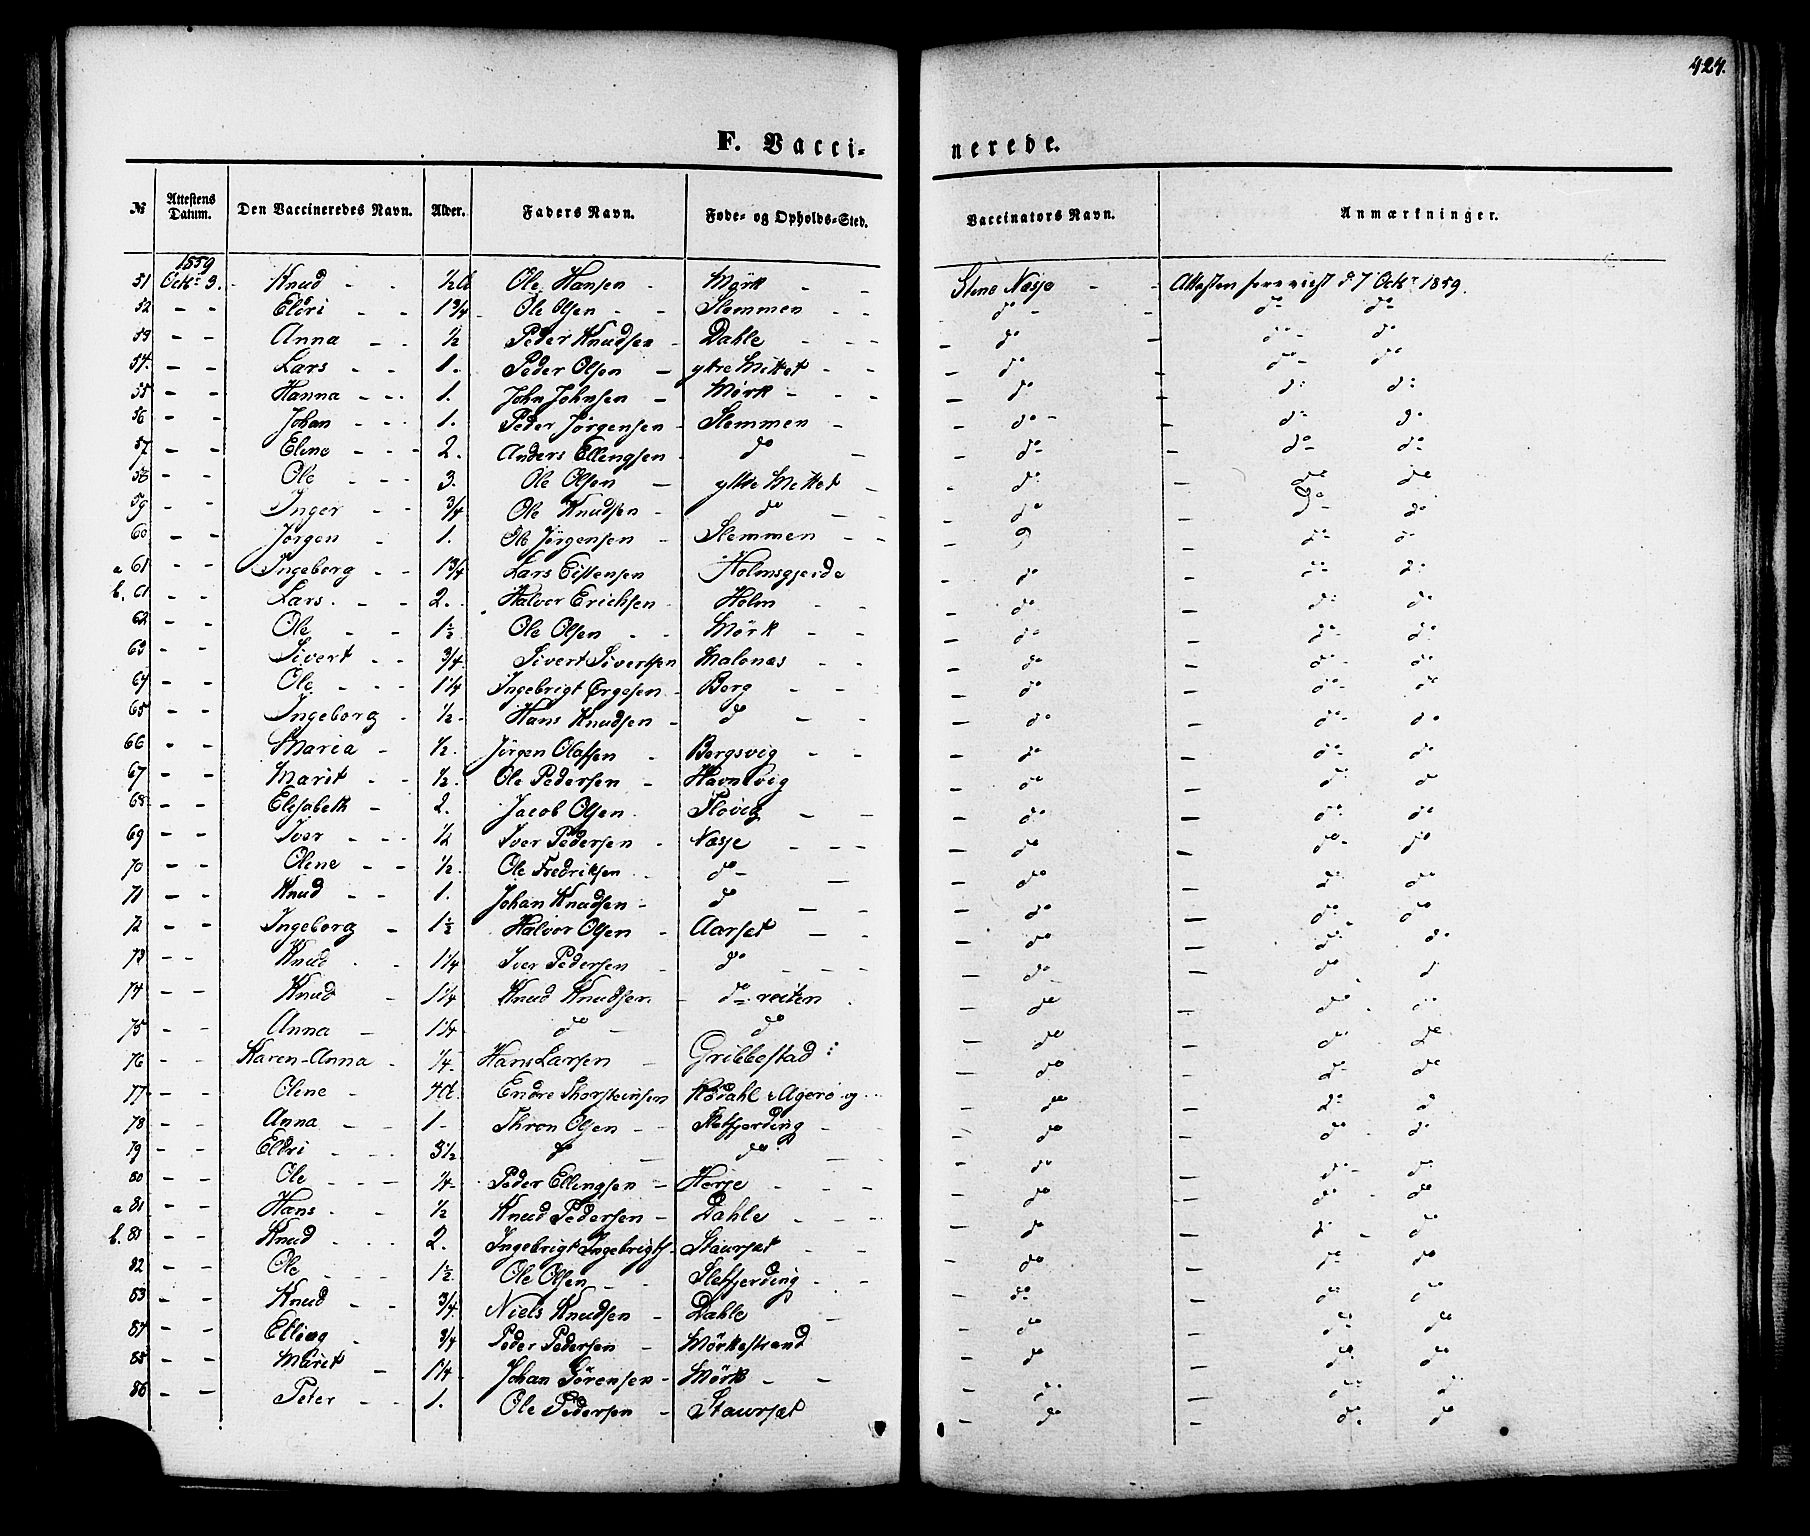 424.
F. Vaccinerede.
№ Attestens Datum. Den Vaccineredes Navn. Alder. Faders Navn. Føde- og Opholds-Sted. Vaccinators Navn. Anmærkninger.
1859
51 Octr 3. Knud ½ A Ole Hansen Mörk Stene Næsje Attesten forevist d 7 Octr 1859.
52 - - Eldri 1¾ Ole Olsen Slemmen do do do
53 - - Anna ½ Peder Knudsen Dahle do do do
54. - - Lars 1. Peder Olsen ytre Mittet do do do
55 - - Hanna 1. John Johnsen Mörk do do do
56 - - Johan 1. Peder Jörgensen Slemmen do do do
57 - - Eline 2. Anders Ellingsen do do do do
58 - - Ole 3. Ole Olsen ytre Mittet do do do
59 - - Inger ¾ Ole Knudsen do do do do
60 - - Jörgen 1. Ole Jörgensen Slemmen do do do
a 61 - - Ingeborg 1¾ Lars Eistensen Holmsgjerde do do do
b. 61 - - Lars 2. Halvor Erichsen Holm do do do
62 - - Ole 1½ Ole Olsen Mörk do do do
63 - - Sivert ¾ Sivert Sivertsen Malones do do do
64 - - Ole 1¼ Ingebrigt Berg do do do
65 - - Ingeborg ½ Hans Knudsen do do do do
66 - - Maria ½ Jörgen Olafsen Bergsvig do do do
67 - - Marit ½ Ole Pedersen Havnsvig do do do
68 - - Elisabeth 2. Jacob Olsen do do do
69 - - Iver ½ Iver Pedersen Næsje do do do
70 - - Olene ½ Ole Fredriksen do do do do
71 - - Knud 1. Johan Knudsen do do do do
72 - - Ingeborg 1½ Halvor Olsen Aarset do do do
73 - - Knud 1¼ Iver Pedersen do do do do
74 - - Knud 1¼ Knud Knudsen do reiten do do do
75 - - Anna 1¼ do do do do do
76 - - Karen-Anna ¼ Hans Larsen Gribbestad do do do
77 - - Olene 4 A Endre Thorsteinsen Rödahl i Agerö do do do
78 - - Anna 1 Thron Olsen Sletfjerding do do do
79 - - Eldri 3½ do do do do do
80 - - Ole ¼ Peder Ellingsen Horje do do do
a 81 - - Hans ½ Knud Pedersen Dahle do do do
b. 81 - - Knud 2. Ingebrigt Ingebrigts. Staurset do do do
82 - - Ole 1½ Ole Olsen Sletfjerding do do do
83 - - Knud ¾ Niels Knudsen Dahle do do do
84 - - Elling ¾ Peder Pedersen Mörkestrand do do do
85 - - Marit 1¼ Johan Sörensen Mörk do do do
86 - - Peter 1. Ole Pedersen Staurset do do do